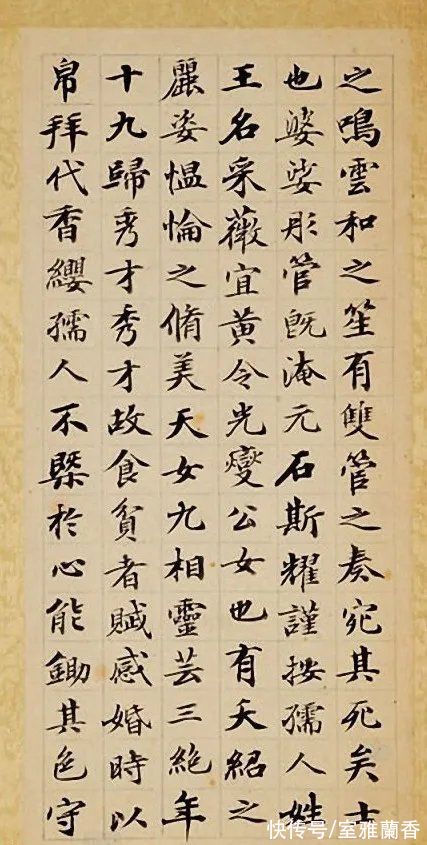 之鳴雲和之笙有雙管之奏宛其死矣士
也媻娑彤管既淹元石斯耀謹按孺人姓
王名采薇宜黃令光燮公女也有夭紹之
麗姿愠惀之脩美天女九相靈芸三絕年
十九歸秀才秀才故食貧者賦感婚時以
帛拜代香纓孺人不槩於心能鋤其色守
快传号/室雅蘭香